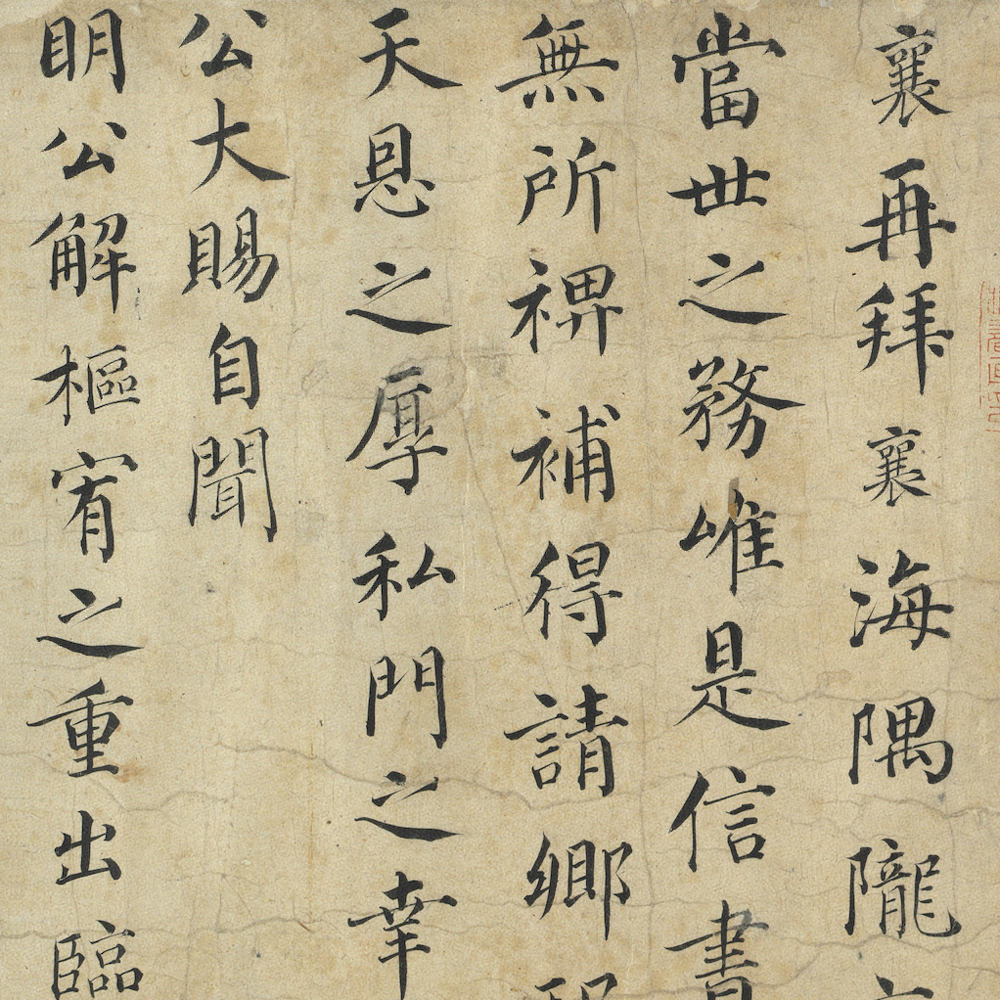 襄再拜襄海隅隴
當世之務唯是信書
無所裨補得請鄉
天恩之厚私門之幸
公大賜自聞
明公解樞宥之重出臨